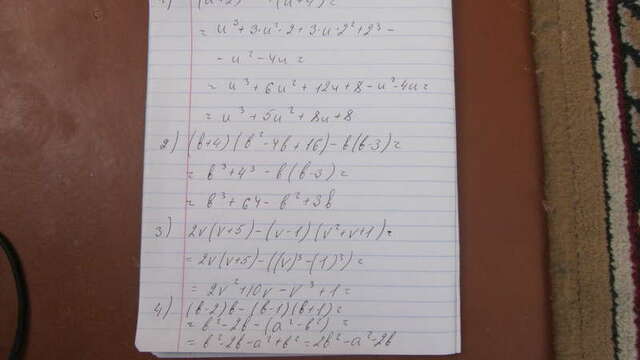 1) (u+2)³ - u(u+4) =
= u³+3·u²·2+3·u·2²+2³ -
- u² - 4u =
= u³+6u²+12u+8-u²-4u =
= u³+5u²+8u+8
2) (b+4)(b²-4b+16)-b(b-3) =
= b³+4³-b(b-3) =
= b³+64-b²+3b
3) 2v(v+5)-(v-1)(v²+v+1) =
= 2v(v+5)-((v)³-(1)³) =
= 2v²+10v-v³+1 =
4) (b-2)b-(b-1)(b+1) =
= b²-2b-(a²-b²) =
= b²-2b-a²+b² = 2b²-a²-2b